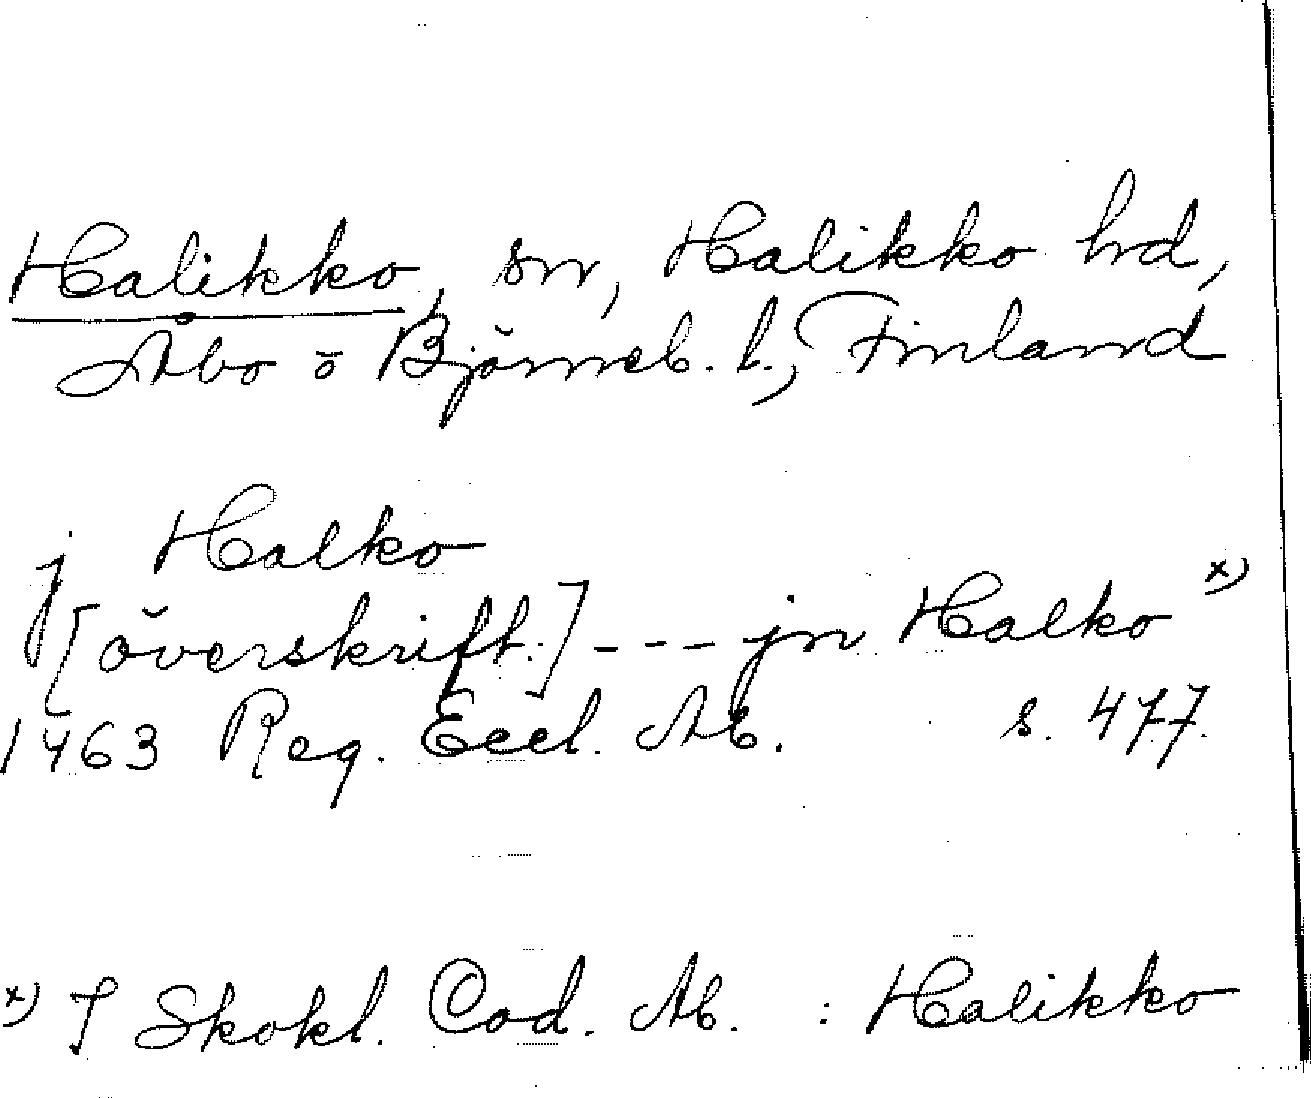 Halikko, sn, Halikko hd,
Åbo o Björneb. l., Finland
j Halko
[överskift.] --- jn Halko x)
1463 Reg. Eccl. Ab. s. 477.
x) I Skokl. Cod. Ab. : Halikko